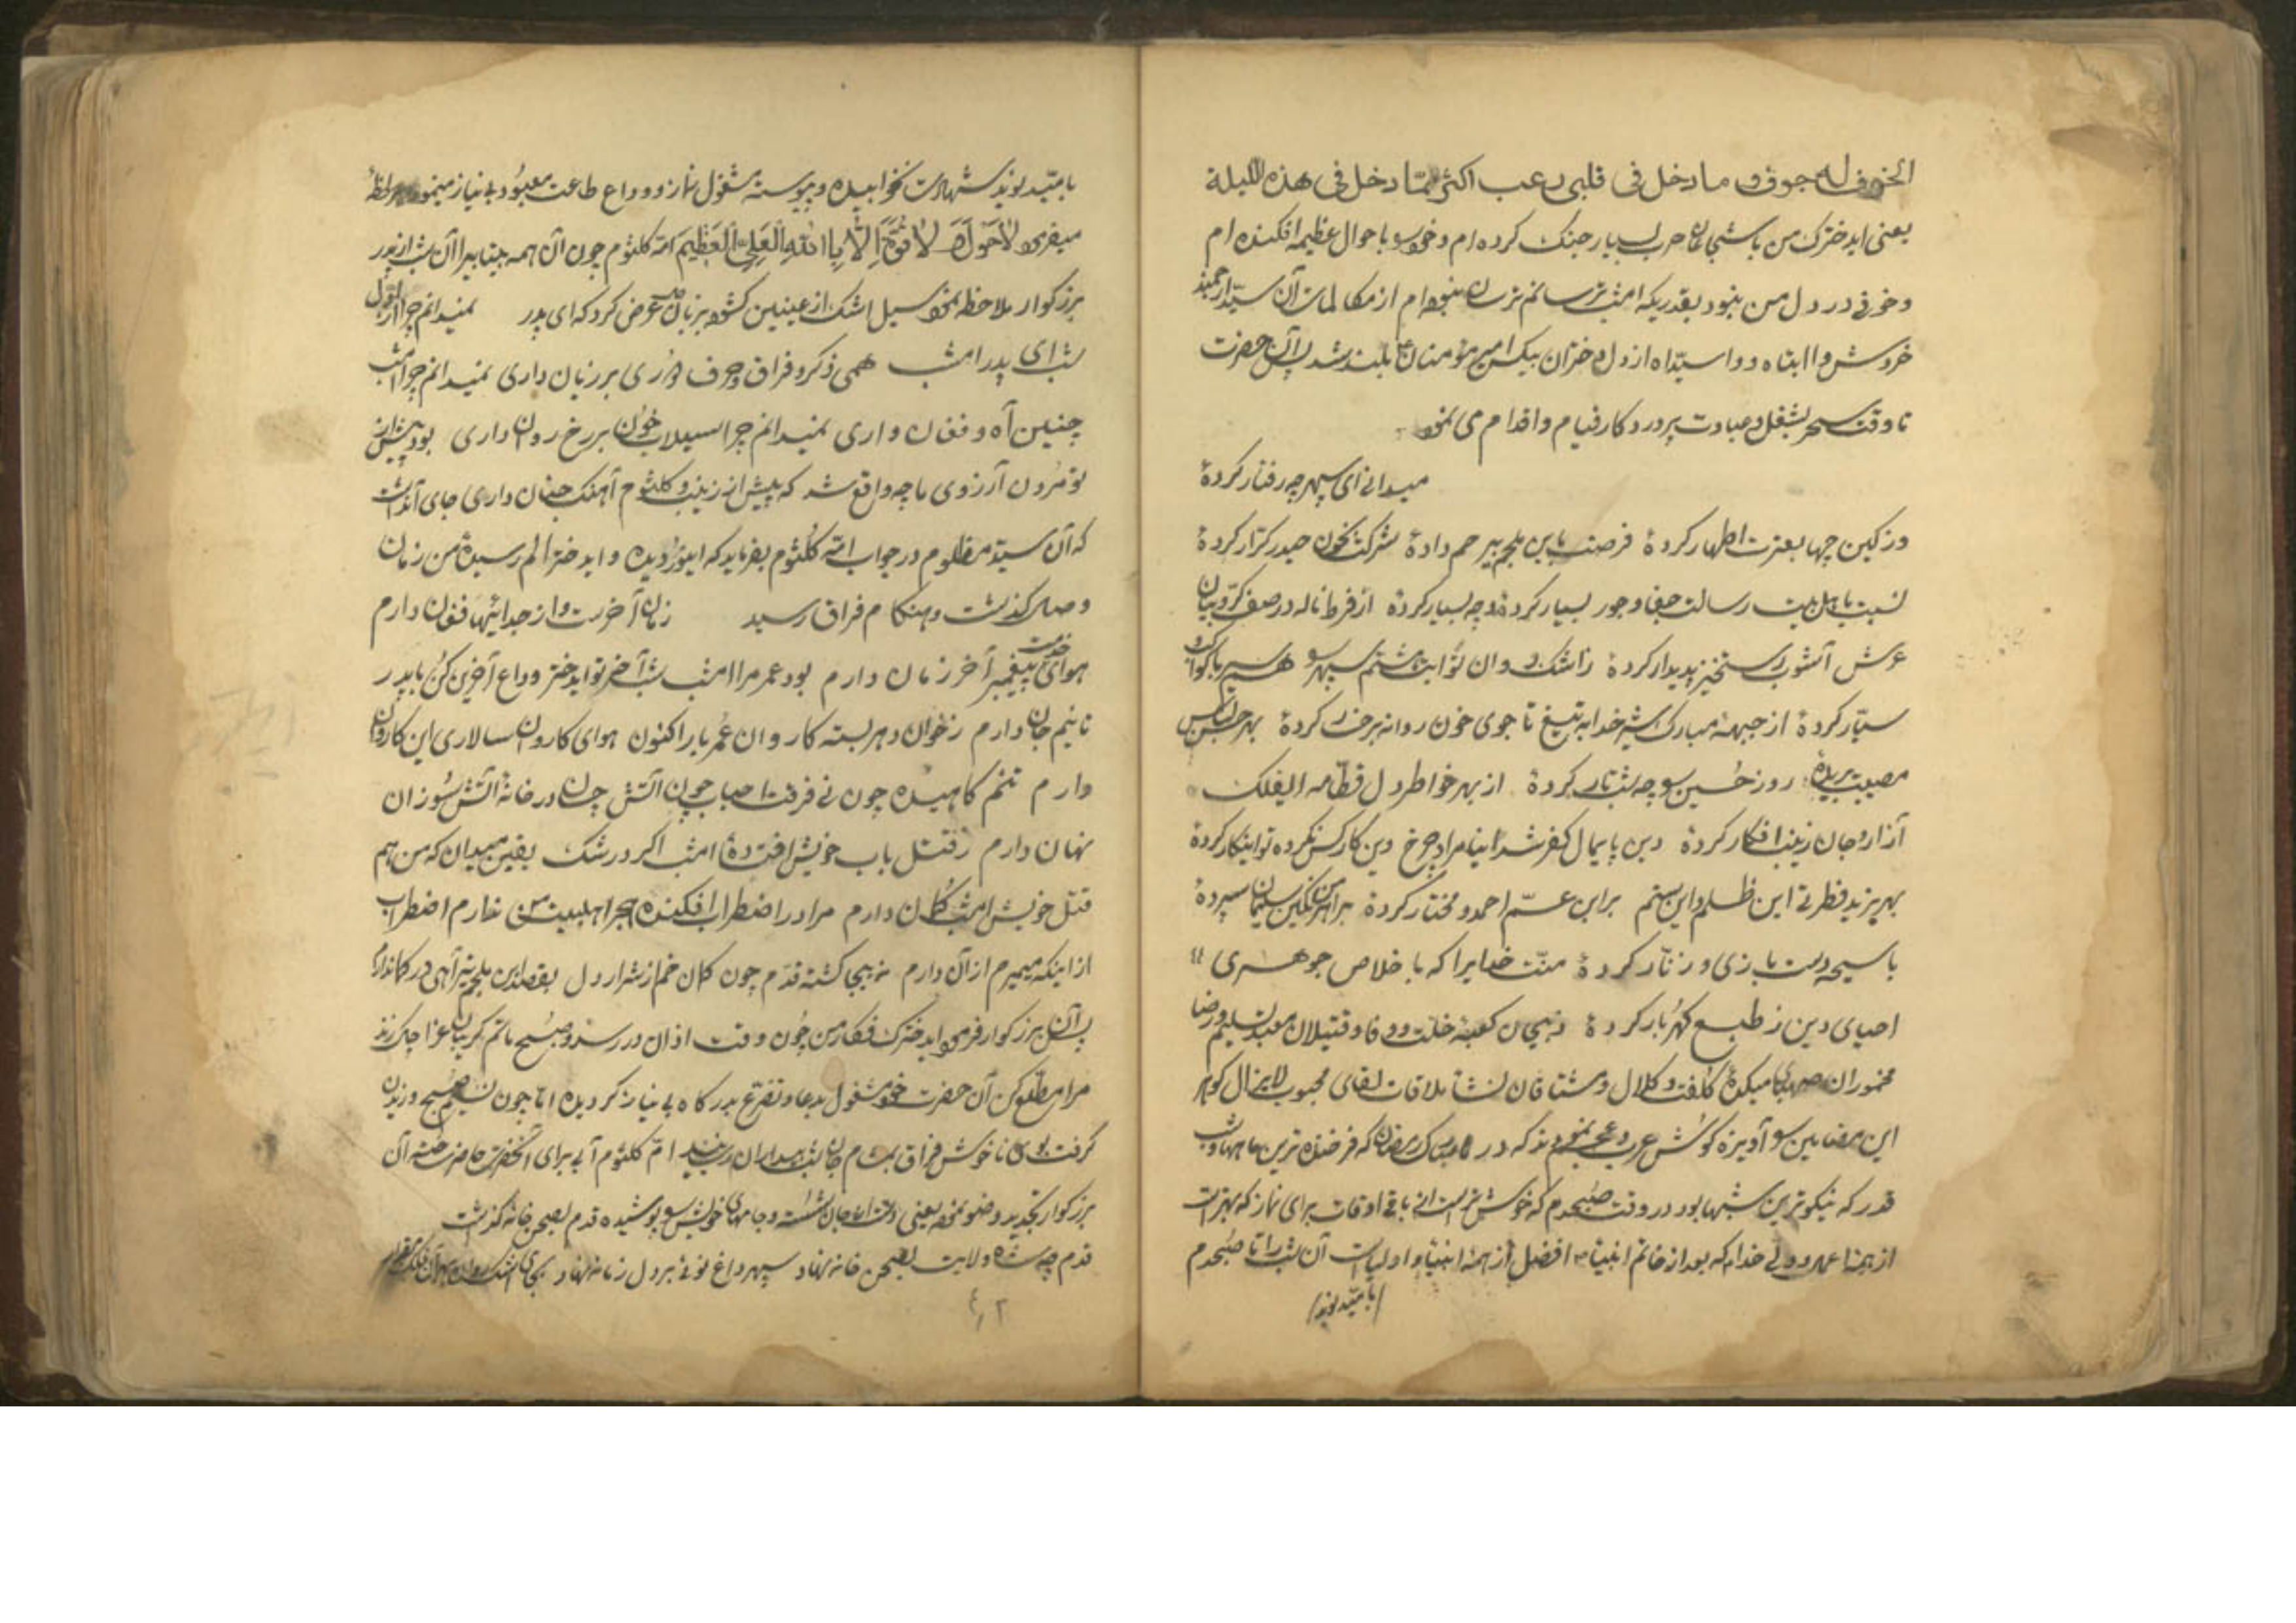 الخوف له جوف و ما دخل فی قلبی رعب اکثر ممّا دخل فی هذه اللیلة
یعنی ایدخترک من با شجاعان حرب بسیار جنک کرده‌ام و خود را باحوال عظیمه افکنده‌ام
و خوفی در دل من نبود بقدریکه امشب ترسانم ترسان نبوده‌ام از مکالمات آن سیّد ارجمند
خروش وا ابتاه و وا سیّداه از دل دختران بیکس امیر مؤمنان بلند شد پس آن حضرت
تا وقت سحر بشغل و عبادت پروردکار قیام و اقدام می نمود
میدانی ای سپهر چه رفتار کردۀ
وز کین چها بعترت اطهار کردۀ فرصت باین ملجم بیرحم دادۀ شرکت بخون حیدر کرّار کردۀ
نسبت باهل بیت رسالت جفا و جور بسیار کردۀ و چه بسیار کردۀ از فرط ناله در صف کرّوبیان
عرش آشوب رستخیز پدیدار کردۀ ز اشک روان ثوابت هشتم سپهر را همسیر با کواکب
سیّار کردۀ از جبههٔ مبارک شیر خدا به تیغ تا جوی خون روانه برخسار کردۀ بهر حسن
مصیبت بریدۀ روز حسین را چو شب تار کردۀ از بهر خواطر دل قطّامه ایفلک
آزار و جان زینب افکار کردۀ دین پایمال کفر شد اینا مراد چرخ وین کار کس نکرده تو اینکار کردۀ
بهر یزید فطرتی این ظلم و این ستم بر ابن عمّ احمد مختار کردۀ بر اهرمن نکین سلیمان سپردۀ
با سبحه دست بازی و زنّار کردۀ منّت خدایرا که با خلاص جوهری
احیای دین ز طبع کهربار کردۀ ذبیحان کعبهٔ خلّت و وفا و قتیلان معبد تسلیم و رضا
مخموران صهبای میکدۀ کلفت و کلال و مشتاقان نشأ ملاقات لقای محبوب لایزال کوهر
این مضامین را آویزه کوش عرب و عجم نمودند که در ماه مبارک رمضان که فرخنده ترین ماهها و شب
قدر که نیکوترین شبها بود در وقت صبحدم که خوش‌تر است از باقی اوقات برای نماز که بهتر است
از همهٔ اعمال ولی خدا که بعد از خاتم انبیا ص افضل از همهٔ انبیا و اولیاست آن شب را تا صبحدم
بامیّد نوید
بامیّد نوید شهادت نخوابیده و پیوسته مشغول نماز و وداع طاعت معبود بی نیاز مینمود هر لحظه
میفرمود لَا حَوْلَ وَ لَا قُوَّةَ اِلَّا بِاللّٰهِ الْعَلِیِّ الْعَظِیم امّ کلثوم چون آن همه بیتابی را آن شب از پدر
بزرکوار ملاحظه نمود سیل اشک از عینین کشوده بزبان عرض کرد که ای پدر نمیدانم چرا از اوّل
شب ای پدر امشب همی ذکر و فراق و حرف دوری بر زبان داری نمیدانم چرا امشب
چنین آه و فغان داری نمیدانم چرا سیلاب خون بر رخ روان داری بود پیش از
تو مردن آرزوی ما چه واقع شد که پیش از زینب و کلثوم آهنک جنان داری جای آنداشت
که آن سیّد مظلوم در جواب امّ کلثوم بفرماید که اینور دیده و ایدختر الم رسیدۀ من زمان
وصل کذشت و هنکام فراق رسید زمان آخرست و از جدائیها فغان دارم
هوای خدمت پیغمبر آخر زمان دارم بود عمر مرا امشب شب آخر تو ایدختر وداع آخرین کن با پدر
تا نیم جان دارم ز خوان دهر بسته کاروان عمر بار اکنون هوای کاروان سالاری این کاروان
دارم تنم کاهیده چون نی فرقت احباب چون آتش چسان در خانهٔ آتش سوزان
نهان دارم ز قتل باب خویش افتادۀ امشب اکر در شک یقین میدان که من هم
قتل خویش امشب کمان دارم مرا در اضطراب افکنده هجر اهلبیت من ندارم اضطراب
از اینکه میمیرم از آن دارم نه بیجا کشته قدّم چون کمان خم از شرار دل بقصد ابن ملجم تیر آهی در کمان دارم
پس آن بزرکوار فرمود ایدخترک فکار من چون وقت اذان در رسد و صبح ماتم کریبان عزا چاک زند
مرا مطلع کن آن حضرت خود مشغول بدعا و تضرّع بدرکاه بی نیاز کردیده امّا چون نسیم صبح وزیدن
کرفت بوی ناخوش فراق بمشام جان رسید امّ کلثوم آبی برای آنحضرت حاضر ساخته آن
بزرکوار تجدید وضو نموده یعنی دست از جان شسته و جامهای خویش را پوشیده قدم بصحن خانه کذاشت
قدم چه شاه ولایت بصحن خانه نهاد سپهر داغ نوئی بر دل زمانه نهاد بجای اشک